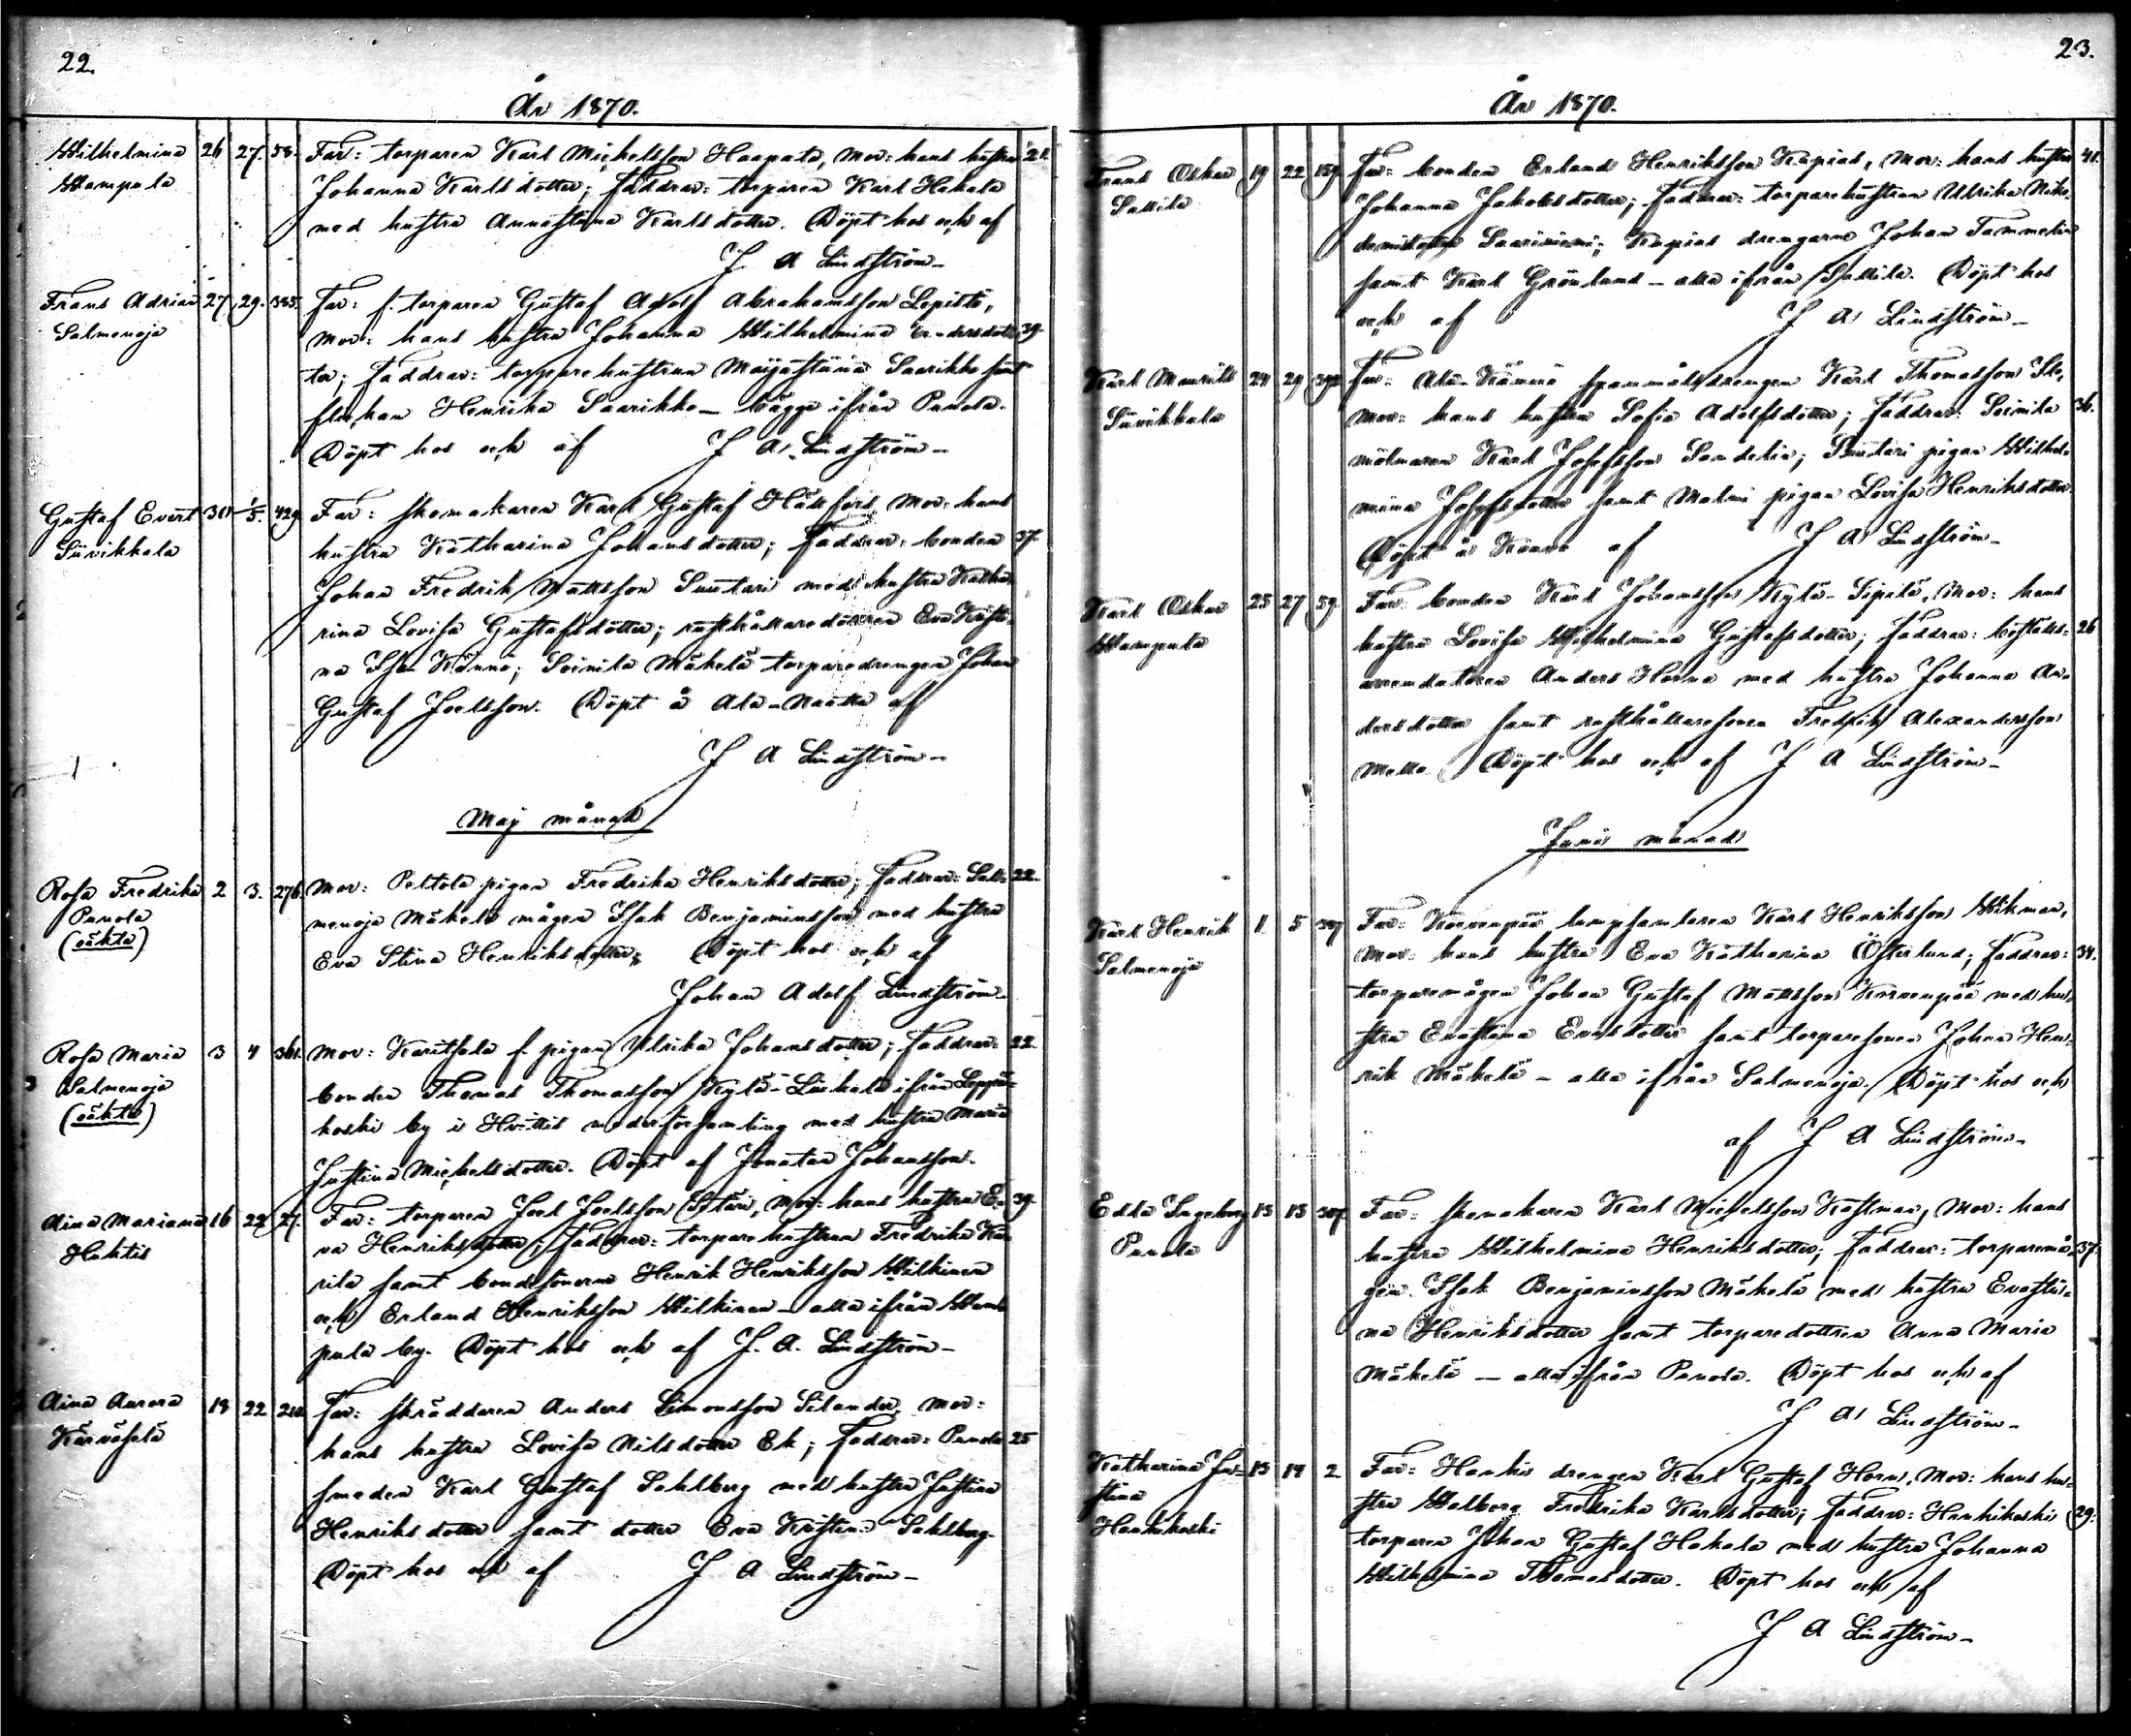 22.
År 1870.
Wilhelmina 26 27. 58. Far: torparen Karl Michelsson Haapala, Mor: hans hustru 21.
Wampula Johanna Karlsdotter; Faddrar: torparen Karl Hakala
med hustru Annastina Karlsdotter. Döpt hos och af
J A Lindström
Frans Adrian 27. 29. 385. Far: f. torparen Gustaf Adolf Abrahamsson Lepistö,
Salmenoja Mor: hans hustru Johanna Wilhelmina Andersdot- 39.
ter; Faddrar: torparehustrun Majastina Saarikko samt
flickan Henrika Saarikko – bägge ifrån Punola.
Döpt hos och af J A Lindström
Gustaf Evert 30 1/5. 429. Far: skomakaren Karl Gustaf Hällfors, Mor: hans
Sürikkala hustru Katharina Johansdotter; Faddrar: bonden 37.
Johan Fredrik Mattsson Suutari med hustru Katha-
rina Lovisa Gustafsdotter; rusthållaredottren Eva Kristi-
na Känni; Soinila Mäkelä torparedrengen Johan
Gustaf Joelsson. Döpt å Ala- af
J A Lindström
Maj månad
Rosa Fredrika 2 3. 276. Mor: Peltola pigan Fredrika Henriksdotter; Faddrar: Sal- 22.
Punola menoja Mäkelä mågen Isak Benjaminsson med hustru
(oäkta) Eva Stina Henriksdotter; Döpt hos och af
Johan Adolf Lindström
Rosa Maria 3 4 361. Mor: Karitsala f. pigan Ulrika Johansdotter; Faddrar: 22.
Salmenoja bonden Thomas Thomasson Kylä-Liukala ifrån Leppä-
(oäkta) koski by i Hvittis moderförsamling med hustru Maria
Justina Michelsdotter. Döpt af Jonatan Johansson.
Aina Mariana 16 22 27. Far: torparen Joel Joelsson, Mor: hans hustru E- 39.
Huhtis va Henriksdotter; Faddrar: torparehustrun Fredrika Ka-
rila samt bondsönerne Henrik Henriksson Wilkinen
och Erland Henriksson Wilkinen – alla ifrån Wam-
pula by. Döpt hos och af J. A. Lindström
Aina Aurora 18 22 210. Far: skräddaren Anders Simonsson Silander, Mor:
hans hustru Lovisa Nilsdotter Ek; Faddrar: Punola 25
smeden Karl Gustaf Sahlberg med hustru Justina
Henriksdotter samt dotter Eva Kristina Sahlberg
Döpt hos och af J A Lindström
23.
År 1870.
Frans Oskar 19 22 159. Far: bonden Erland Henriksson Krapias, Mor: hans hustru 41.
Sallila Johanna Jakobsdotter; Faddrar: torparehustrun Ulrika Niko-
demidotter Saariniemi; Krapias drengarne Johan Tammelin
samt Karl Grönlund – alla ifrån Sallila. Döpt hos
och af J A Lindström
Karl Mauritz 24 29 392 Far: Ala-Känni spannmålsdrengen Karl Thomasson,
Sürikkala Mor: hans hustru Sofia Adolfsdotter; Faddrar: Soinila 36.
mölnaren Karl Josefsson Sandelin; Suutari pigan Wilhel-
mina Josefsdotter samt Malmi pigan Lovisa Henriksdotter.
Döpt å Känni af J A Lindström
Karl Oskar 25 27 59. Far: bonden Karl Johansson Kylä-Sipilä, Mor: hans
Wampula hustru Lovisa Wilhelmina Gustafsdotter; Faddrar: boställs- 26
arrendatoren Anders Horna med hustru Johanna An-
dersdotter samt rusthållaresonen Fredrik Alexandersson
Döpt hos och af J A Lindström
Juni månad
Karl Henrik 1. 5 Far: Korvenpää lumpsamlaren Karl Henriksson Wikman,
Salmenoja Mor: hans hustru Eva Katharina Österlund; Faddrar: 34.
torparemågen Johan Gustaf Mattsson Korvenpää med hu-
stru Evastina Eriksdotter samt torparesonen Johan Hen-
rik Mäkelä – alla ifrån Salmenoja. Döpt hos och
af J A Lindström
Edla Ingeborg 13 15 307. Far: skomakaren Karl Michelsson Kastman, Mor: hans
Punola hustru Wilhelmina Henriksdotter; Faddrar: torparemå- 37.
gen Isak Benjaminsson Mäkelä med hustru Evasti-
na Henriksdotter samt torparedottren Anna Maria
Mäkelä – alla ifrån Punola. Döpt hos och af
J A Lindström
Katharina Ju- 13 19 2 Far: Hanhi drengen Karl Gustaf Horn, Mor: hans hu-
stina stru Walborg Fredrika Karlsdotter; Faddrar: Hanhikoski 29.
Hanhikoski torparen Johan Gustaf Hakala med hustru Johanna
Wilhelmina Thomasdotter. Döpt hos och af
J A Lindström